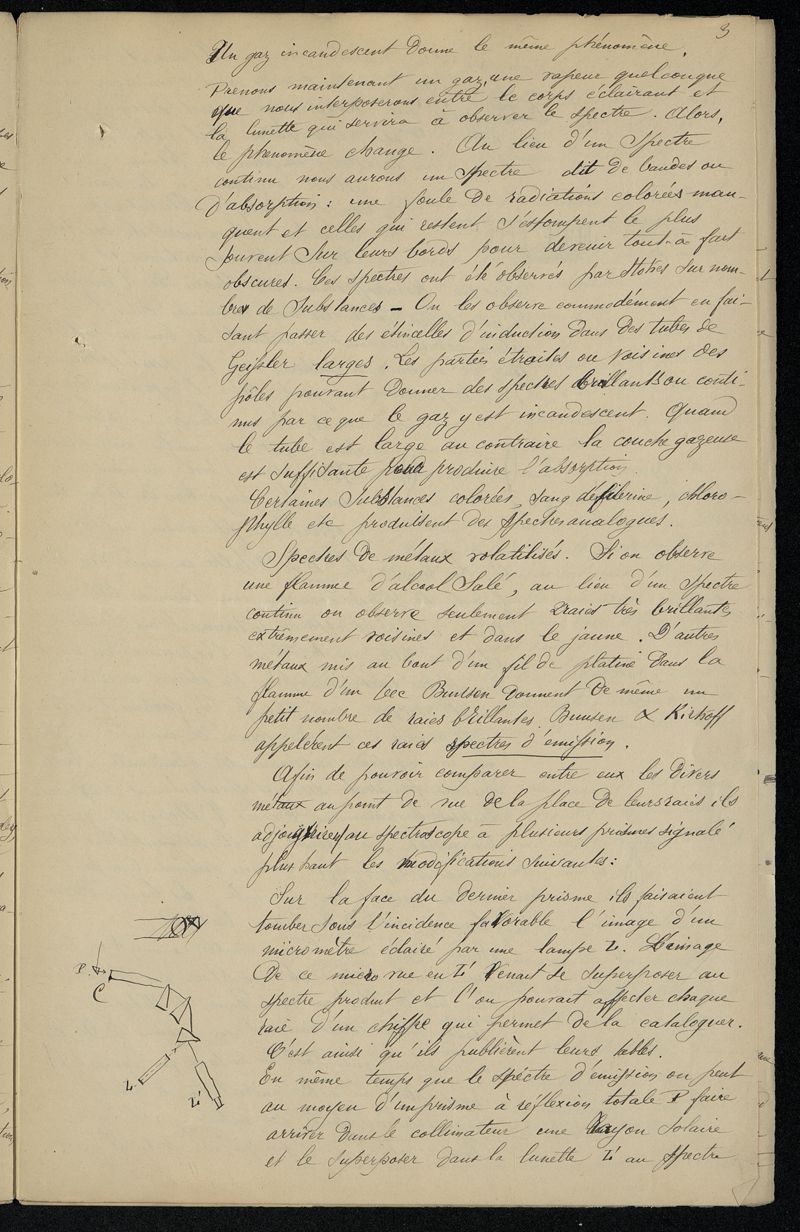 3
Un gaz incandescent donne le même phénomène.
Prenons maintenant un gaz, une vapeur quelconque
que nous interposerons entre le corps éclairant et
la lunette qui servira à observer le spectre. Alors,
le phénomène change. Au lieu d'un spectre
continu nous aurons un spectre dit de bandes ou
d'absorption : une foule de radiations colorées man-
quent et celles qui restent s'estompent le plus
souvent sur leurs bords pour devenir tout-à fait
obscures. Ces spectres ont été observés par Stokes sur nom-
bre de substances – On les observe commodément en fai-
sant passer des étincelles d'induction dans des tubes de
Geissler larges. Les parties étroites ou voisines des
pôles pouvant donner des spectres brillants ou conti-
nus par ce que le gaz y est incandescent. Quand
le tube est large au contraire la couche gazeuse
est suffisante pour produire l'absorption.
Certaines substances colorées, sang chloro-
phylle etc produisent des spectres analogues.
Spectres de métaux volatilisés. Si on observe
une flamme d'alcool salé, au lieu d'un spectre
continu on observe seulement 2 raies très brillantes
extrêmement voisines et dans le jaune. D'autres
métaux mis au bout d'un fil de platine dans la
flamme d'un bec Bunsen donnent de même un
petit nombre de raies brillantes. Bunsen & Kirkoff
appelèrent ces raies spectres d'émission.
Afin de pouvoir comparer entre eux les divers
métaux au point de vue de la place de leurs raies ils
au spectroscope à plusieurs prismes signalé
plus haut les modifications suivantes :
Sur la face du dernier prisme ils faisaient
tomber sous l'incidence favorable l'image d'un
micromètre éclairé par une lampe L. L'image
de ce micro vue en L' venait se superposer au
spectre produit et l'on pouvait affecter chaque
raie d'un chiffre qui permet de la cataloguer.
C'est ainsi qu'ils publièrent leurs tables.
En même temps que le spectre d'émission on peut
au moyen d'un prisme à réflexion totale P faire
arriver dans le collimateur une rayon solaire
et le superposer dans la lunette L' au spectre
P
C
L
L'